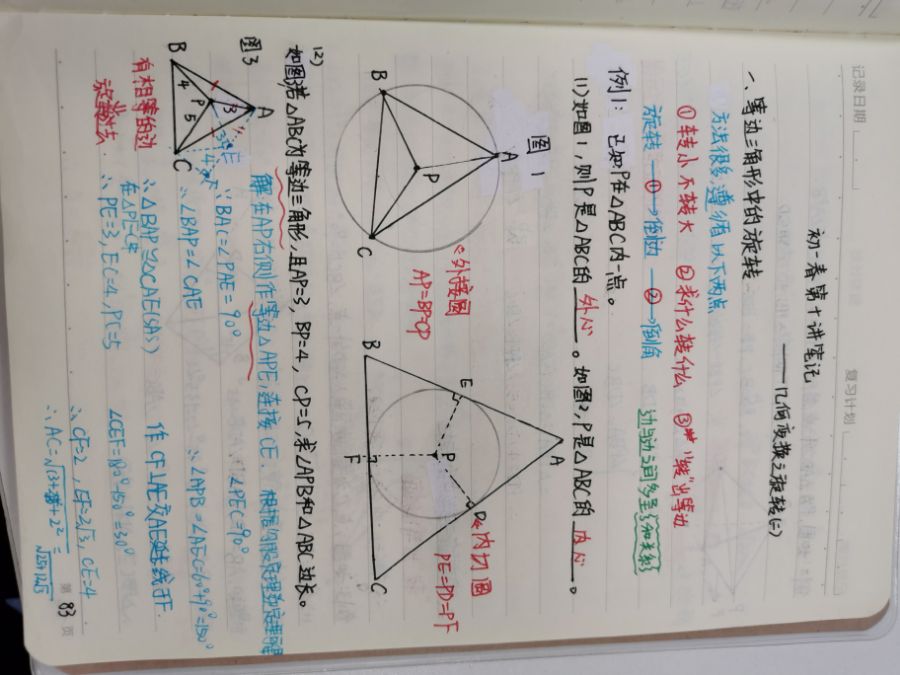 记录日期
复习计划
初一春第十讲笔记
——几何变换之旋转(二)
一、等边三角形中的旋转
方法很多遵循以下两点
①转小不转大 ②求什么转什么 ③"转"出等边
旋转 ①→倒边 ②→倒角
例1: 已知P在△ABC内一点。
(1)如图1,则P是△ABC的 外心 。如图2,P是△ABC的 内心 。
图1
A
B
C
P
外接圆
AP=BP=CP
A
B
C
D
E
F
P
内切圆
PE=PD=PF
(2)
如图,若△ABC为等边三角形,且AP=3,BP=4,CP=5,求∠APB和△ABC边长。
图3
A
B
C
P
E
3
4
5
有相等的边
旋转过去
解:在AP右侧作等边△APE,连接CE.
∠PEC=90°
∵∠BAC=∠PAE=90°
∴∠BAP=∠CAE
∴∠APB=∠AEC=60°+90°=150°
∴△BAP≌△CAE(SAS)
作CF⊥AE交AE延长线于F.
∴PE=3,EC=4,PC=5
∠CEF=180°-150°=30°
∴CF=2,EF=2√3,CE=4
第 83 页